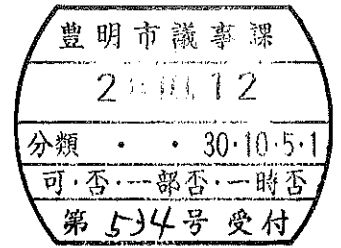 豊明市議事課
2 12
分類 ・ ・ 30・10・5・1
可・否・一部否・一時否
第 534 号 受付